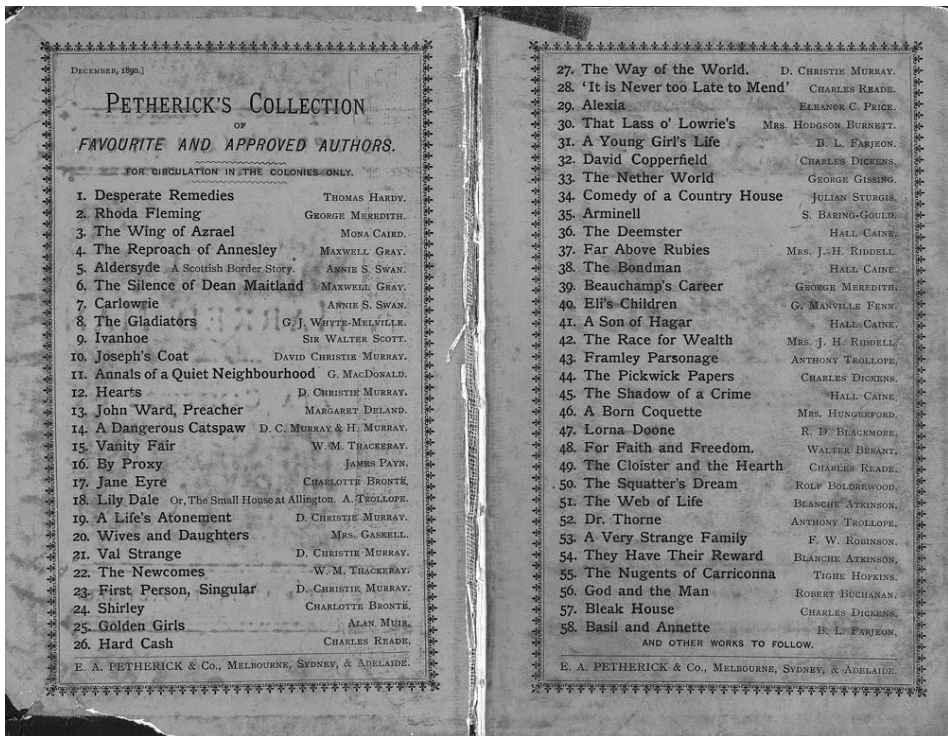 DECEMBER, 1890.]
PETHERICK'S COLLECTION
OF
FAVOURITE AND APPROVED AUTHORS.
FOR CIRCULATION IN THE COLONIES ONLY.
1. Desperate Remedies THOMAS HARDY.
2. Rhoda Fleming GEORGE MEREDITH.
3. The Wing of Azrael MONA CAIRD.
4. The Reproach of Annesley MAXWELL GRAY.
5. Aldersyde A Scottish Border Story. ANNIE S. SWAN.
6. The Silence of Dean Maitland MAXWELL GRAY.
7. Carlowrie ANNIE S. SWAN.
8. The Gladiators G. J. WHYTE-MELVILLE.
9. Ivanhoe SIR WALTER SCOTT.
10. Joseph's Coat DAVID CHRISTIE MURRAY.
11. Annals of a Quiet Neighbourhood G. MACDONALD.
12. Hearts D. CHRISTIE MURRAY.
13. John Ward, Preacher MARGARET DELAND.
14. A Dangerous Catspaw D. C. MURRAY & H. MURRAY.
15. Vanity Fair W. M. THACKERAY.
16. By Proxy JAMES PAYN.
17. Jane Eyre CHARLOTTE BRONTË.
18. Lily Dale Or, The Small House at Allington. A. TROLLOPE.
19. A Life's Atonement D. CHRISTIE MURRAY.
20. Wives and Daughters MRS. GASKELL.
21. Val Strange D. CHRISTIE MURRAY.
22. The Newcomes W. M. THACKERAY.
23. First Person, Singular D. CHRISTIE MURRAY.
24. Shirley CHARLOTTE BRONTË.
25. Golden Girls ALAN MUIR.
26. Hard Cash CHARLES READE.
E. A. PETHERICK & Co., MELBOURNE, SYDNEY, & ADELAIDE.
27. The Way of the World. D. CHRISTIE MURRAY.
28. 'It is Never too Late to Mend' CHARLES READE.
29. Alexia ELEANOR C. PRICE.
30. That Lass o' Lowrie's MRS. HODGSON BURNETT.
31. A Young Girl's Life B. L. FARJEON.
32. David Copperfield CHARLES DICKENS.
33. The Nether World GEORGE GISSING.
34. Comedy of a Country House JULIAN STURGIS.
35. Arminell S. BARING-GOULD.
36. The Deemster HALL CAINE.
37. Far Above Rubies MRS. J. H. RIDDELL.
38. The Bondman HALL CAINE.
39. Beauchamp's Career GEORGE MEREDITH.
40. Eli's Children G. MANVILLE FENN.
41. A Son of Hagar HALL CAINE.
42. The Race for Wealth MRS. J. H. RIDDELL.
43. Framley Parsonage ANTHONY TROLLOPE.
44. The Pickwick Papers CHARLES DICKENS.
45. The Shadow of a Crime HALL CAINE.
46. A Born Coquette MRS. HUNGERFORD.
47. Lorna Doone R. D. BLACKMORE.
48. For Faith and Freedom. WALTER BESANT.
49. The Cloister and the Hearth CHARLES READE.
50. The Squatter's Dream ROLF BOLDREWOOD.
51. The Web of Life BLANCHE ATKINSON.
52. Dr. Thorne ANTHONY TROLLOPE.
53. A Very Strange Family F. W. ROBINSON.
54. They Have Their Reward BLANCHE ATKINSON.
55. The Nugents of Carriconna TIGHE HOPKINS.
56. God and the Man ROBERT BUCHANAN.
57. Bleak House CHARLES DICKENS.
58. Basil and Annette B. L. FARJEON.
AND OTHER WORKS TO FOLLOW.
E. A. PETHERICK & Co., MELBOURNE, SYDNEY, & ADELAIDE.